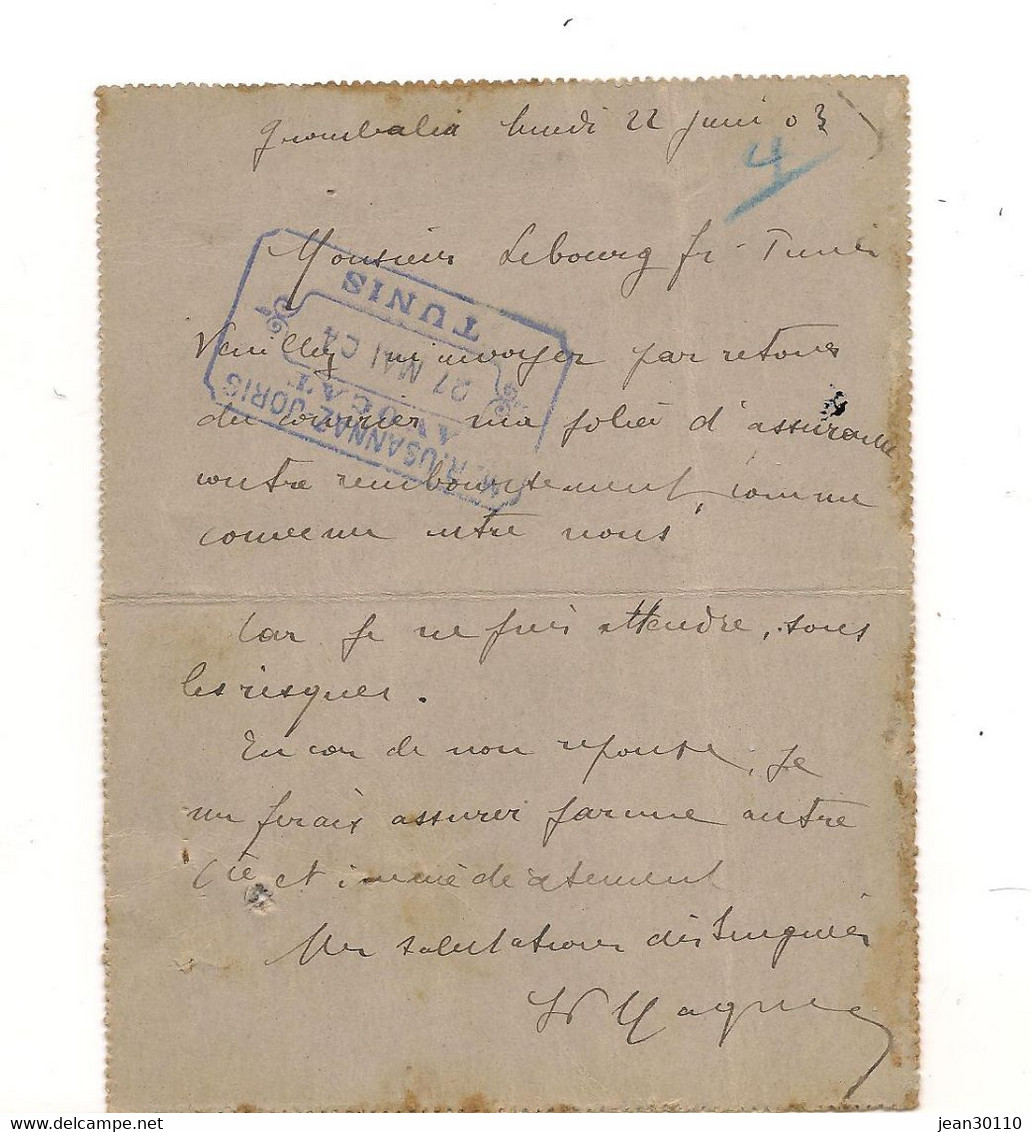 Grombalia lundi 22 juin 03
4
Monsieur Lebourg fr. Tunis
Veuillez m'envoyer par retour
du courrier ma police d'assurance
contre remboursement, comme
convenu entre nous
Car je ne puis attendre, sous
les risques.
En cas de non reponse, je
me ferais assurer par une autre
Cie et immédiatement
Mes salutations distinguées
TUNIS
27 MAI 04
AVOCAT
JORIS
delcampe.net
jean30110